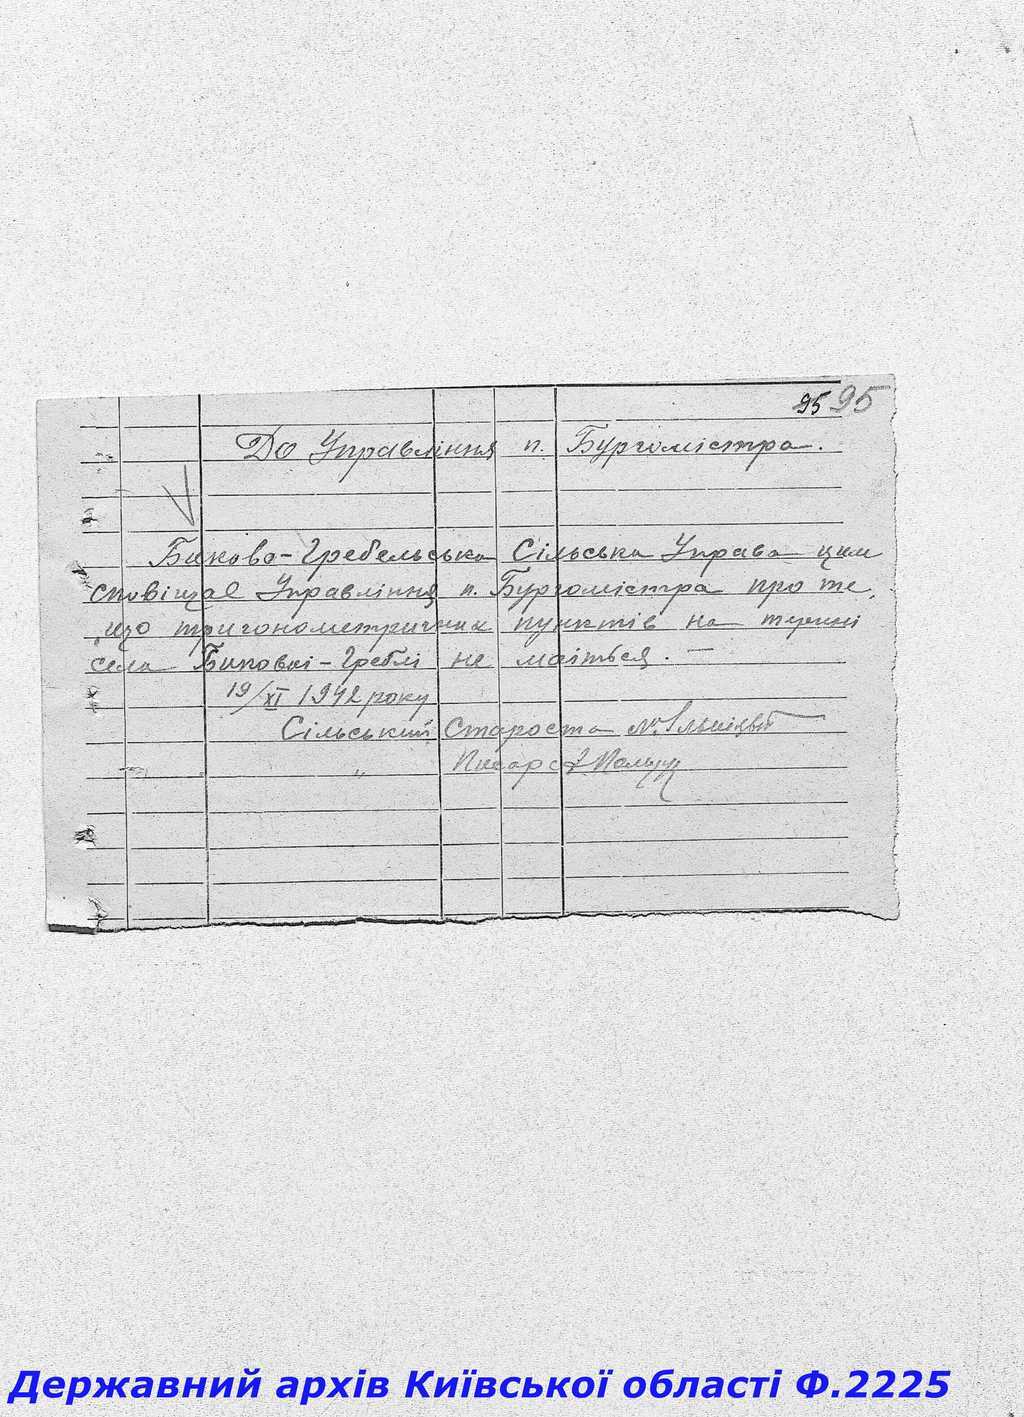 95 95
До Управління п. Бургомістра.
Биково-Гребельська Сільська Управа цим
сповіщає Управління п. Бургомістра про те,
що тригонометричних пунктів на терені
села Бикової-Греблі не маїться. —
19/XI 1942 року
Сільський Староста
„ Писар
Державний архів Київської області Ф.2225